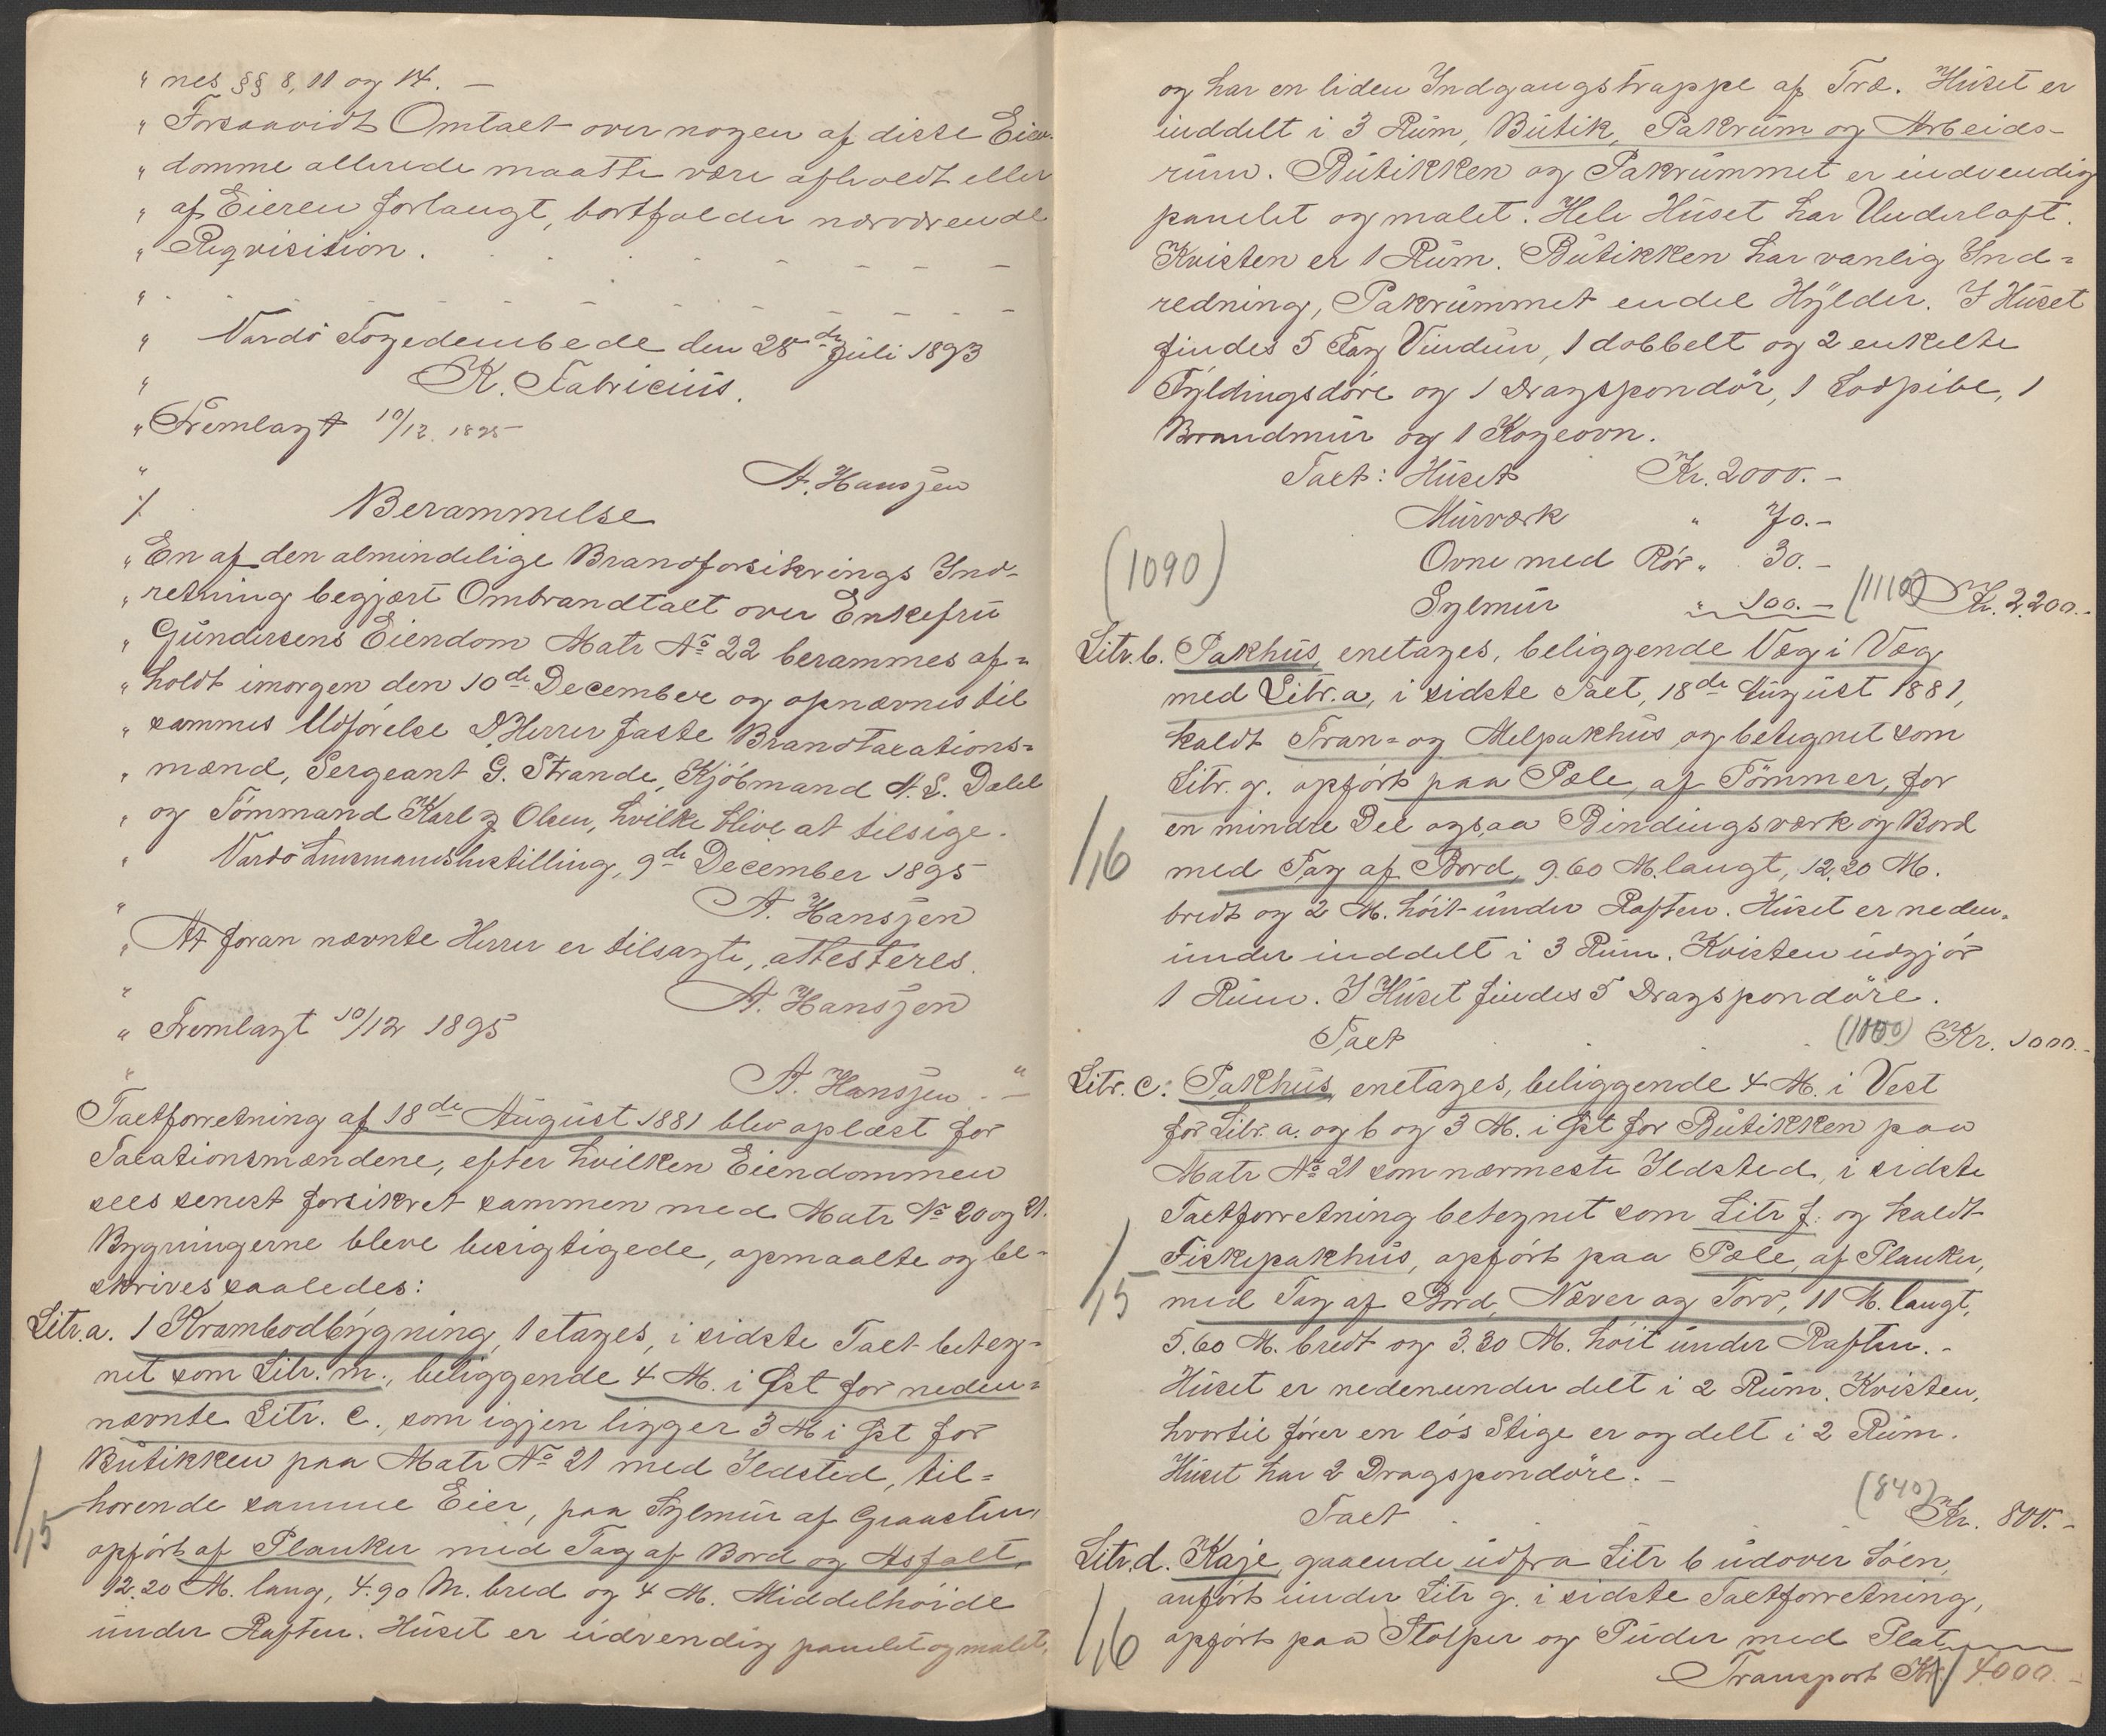 " nes §§ 8, 11 og 14. —
" Forsaavidt Omtaxt over nogen af disse Eien-
" domme allerede maatte være afholdt eller
" af Eieren forlangt, bortfalder nærværende
" Reqvisition.
"
" Vardö Fogedembede den 28de Juli 1893
" K. Fabricius.
" Fremlagt 10/12 1895
" A. Hanssen
% Berammelse
" En af den almindelige Brandforsikrings Ind-
" retning begjært Ombrandtaxt over Enkefru
" Gundersens Eiendom Matr No 22 berammes af=
" holdt imorgen den 10de December og opnævnes til
" sammes Udförelse D'Herrer faste Brandtaxations=
" mænd, Sergeant G. Strande, Kjöbmand N. L. Dahl
" og Tömmand Karl J Olsen, hvilke blive at tilsige.
" Vardö Lensmandsbestilling, 9de December 1895
" A. Hanssen
" At foran nævnte Herrer er tilsagte, attesteres.
" A. Hanssen
" Fremlagt 10/12 1895
" A. Hanssen. — "
Taxtforretning af 18de August 1881 blev oplæst for
Taxationsmændene, efter hvilken Eiendommen
sees senest forsikret sammen med Matr No 20 og 21.
Bygningerne bleve besigtigede, opmaalte og be-
skrives saaledes:
Litr. a. 1 Krambodbygning, 1 etages, i sidste Taxt beteg-
net som Litr. m., beliggende 4 M. i Øst for neden=
nævnte Litr. c., som igjen ligger 3 M i Øst for
Butikken paa Matr No 21 med Ildsted, til=
hörende samme Eier, paa Sylmur af Graasten,
1/15
opfört af Planker med Tag af Bord og Asfalt,
12.20 M. lang, 4.90 M. bred og 4 M. Middelhöide
under Raften. Huset er udvendig panelet og malet,
og har en liden Indgangstrappe af Træ. Huset er
inddelt i 3 Rum, Butik, Pakrum og Arbeids-
rum. Butikken og Pakrummet er indvendig
panelet og malet. Hele Huset har Underloft.
Kvisten er 1 Rum. Butikken har vanlig Ind=
redning, Pakrummet endel Hylder. I Huset
findes 5 Fag Vinduer, 1 dobbelt og 2 enkelte
Fyldingsdöre og 1 Dragspondör, 1 Lodpibe, 1
Brandmur og 1 Kogeovn.
Taxt: Huset Kr. 2000. —
Murværk " 70. —
(1090)
Ovne med Rör " 30. —
Sylmur " 100. — (1110) Kr. 2200. -
Litr. b. Pakhus, enetages, beliggende Væg i Væg
med Litr. a, i sidste Taxt, 18de August 1881,
kaldt Tran- og Melpakhus og betegnet som
Litr. g. opfört paa Pæle, af Tömmer, for
en mindre Del ogsaa Bindingsværk og Bord
1/16
med Tag af Bord, 9.60 M. langt, 12.20 M.
bredt og 2 M. höit under Raften. Huset er neden-
under inddelt i 3 Rum. Kvisten udgjör
1 Rum. I Huset findes 5 Dragspondöre.
Taxt (1050) Kr. 1000. -
Litr. c: Pakhus, enetages, beliggende 4 M. i Vest
for Litr. a. og b og 3 M. i Øst for Butikken paa
Matr No 21 som nærmeste Ildsted, i sidste
Taxtforretning betegnet som Litr f. og kaldt
Fiskepakhus, opfört paa Pæle, af Planker,
1/15
med Tag af Bord, Næver og Torv, 11 M. langt,
5.60 M. bredt og 3.30 M. höit under Raften. -
Huset er nedenunder delt i 2 Rum. Kvisten,
hvortil förer en lös Stige er og delt i 2 Rum.
Huset har 2 Dragspondöre. —
Taxt (840) Kr. 800. -
Litr. d. Kaje, gaaende udfra Litr b udover Söen,
anfört under Litr g. i sidste Taxtforretning,
1/16
opfört paa Stolper og Puder med Plat-
Transport Kr. 4000. -